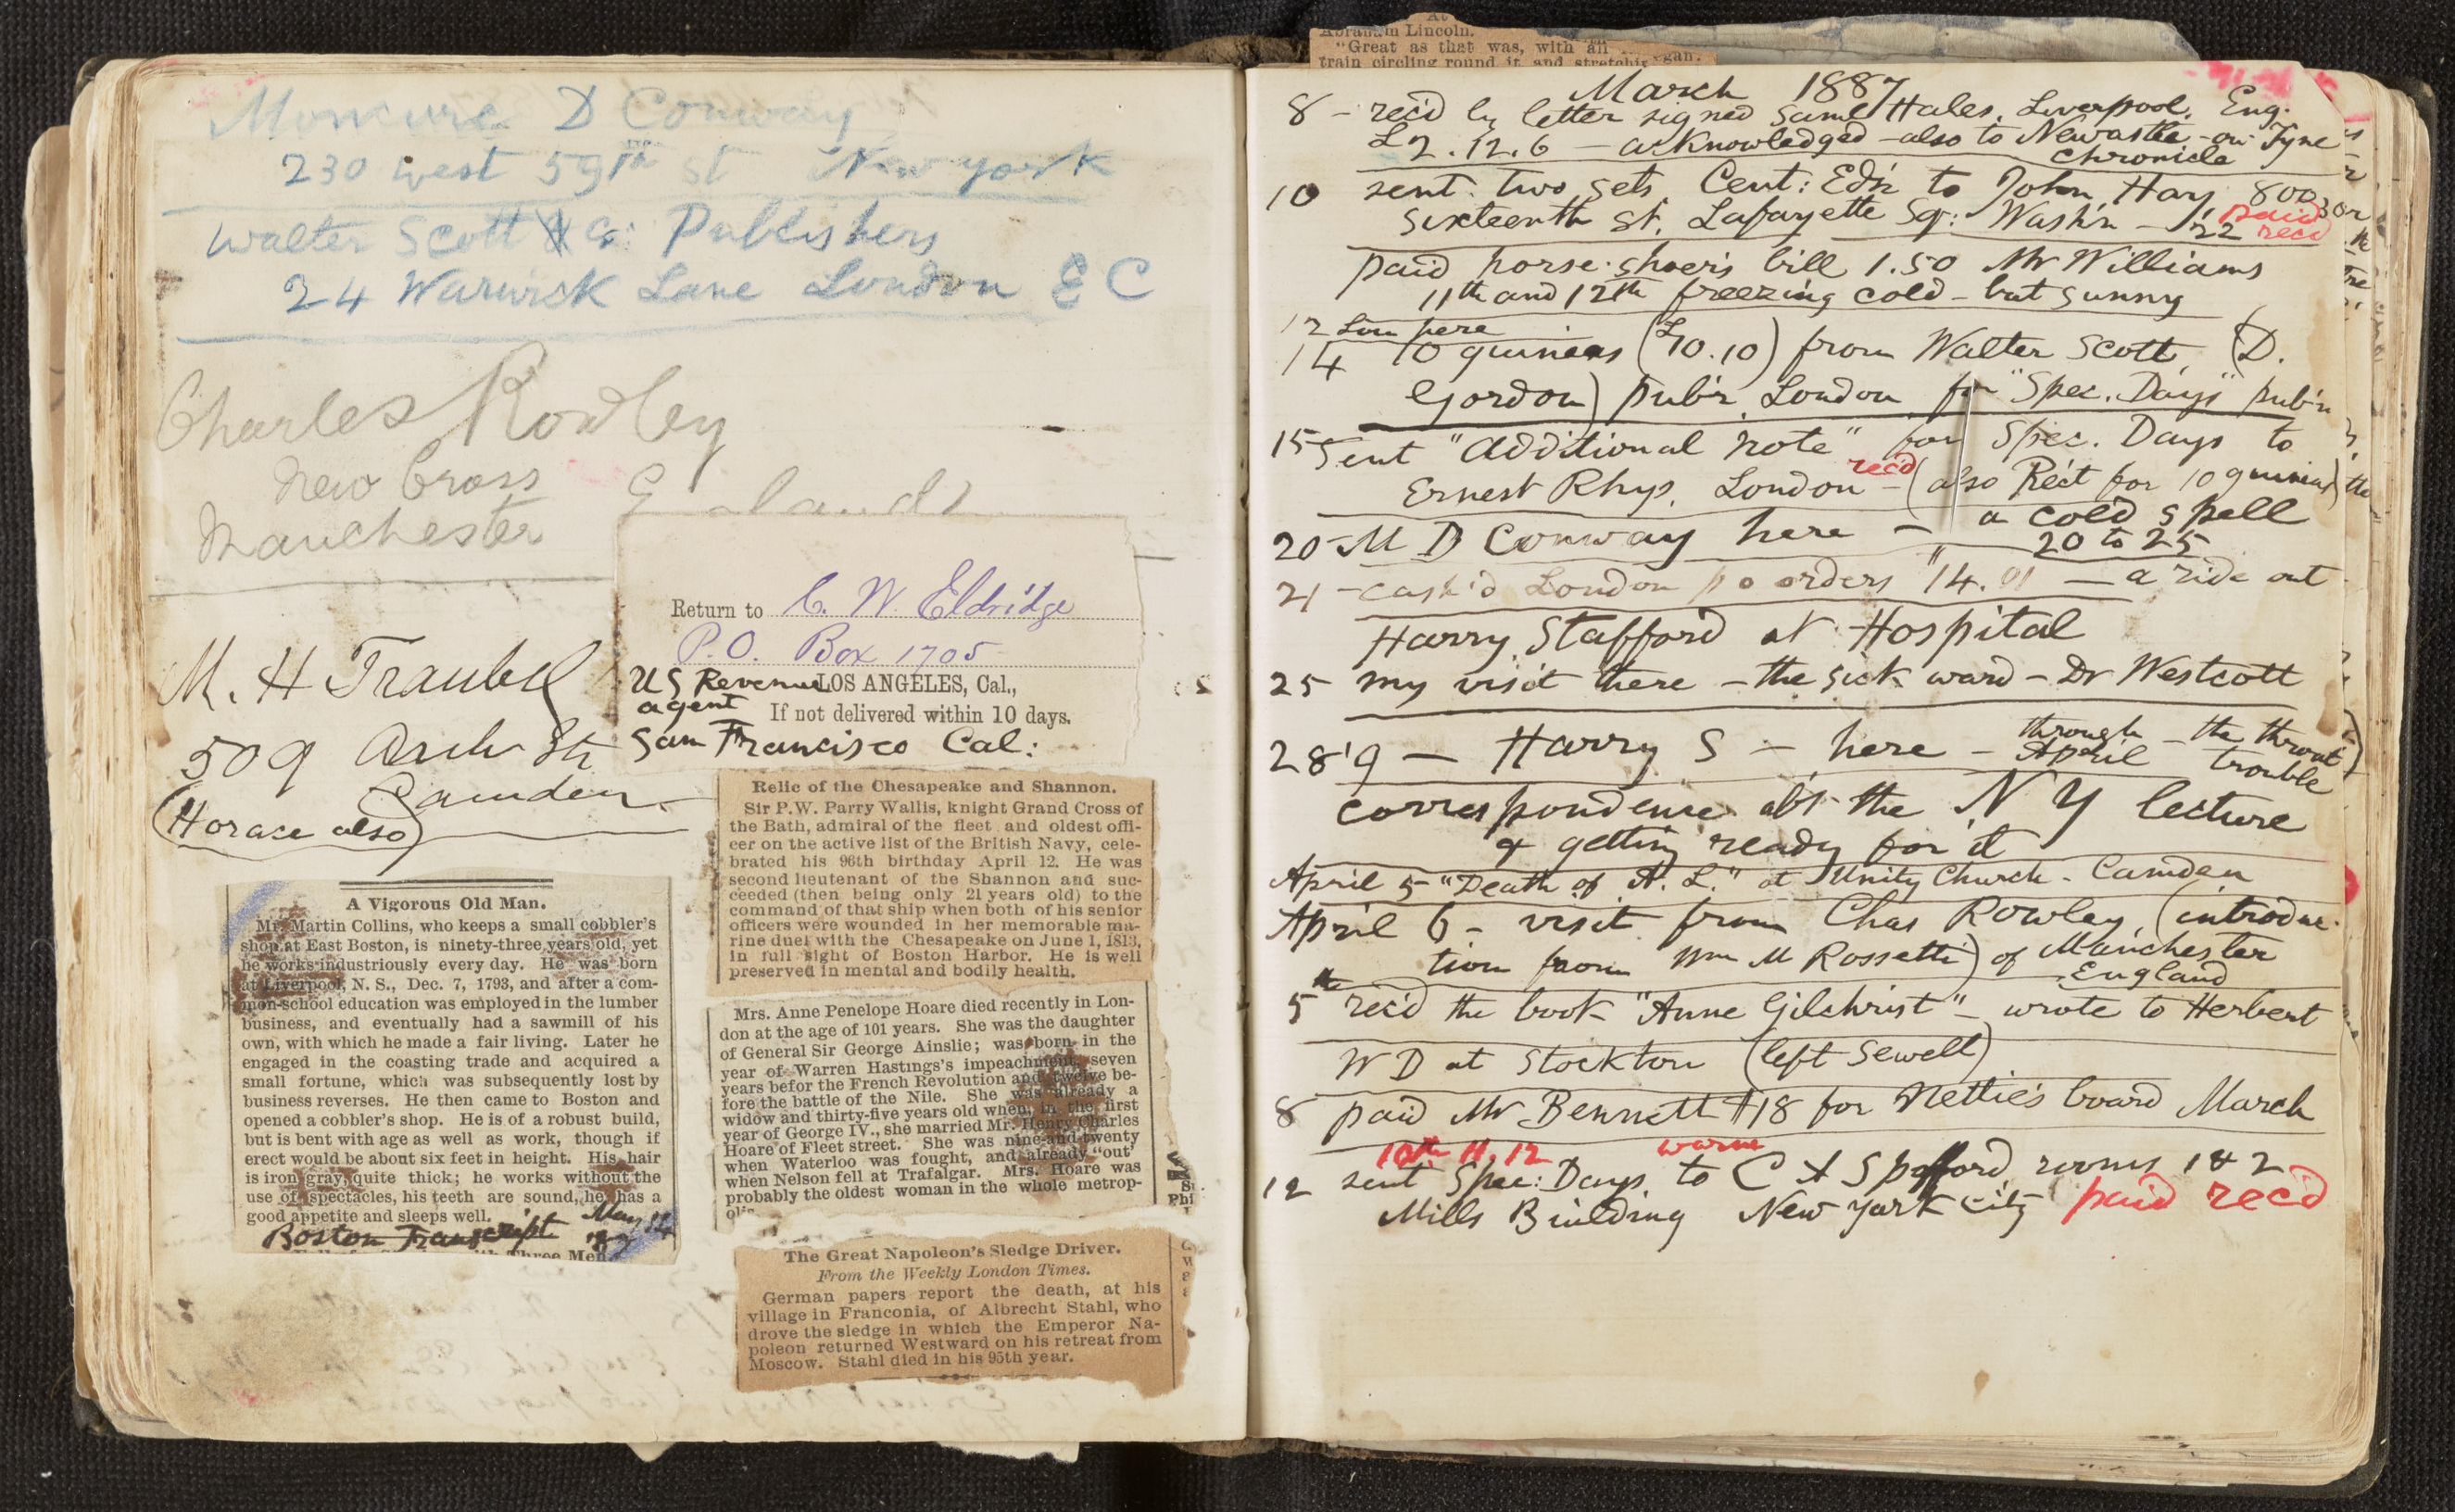 Moncure D Conway
230 west 59th st New york
Walter Scott & Co: Publishers
24 Warwick Lane London E C
Charles Rowley
New Cross
Manchester England
M. H Traubel
509 Arch St
Camden
(Horace also)
Return to C. W. Eldridge
P.O. Box 1705
US Revenue LOS ANGELES, Cal.,
agent If not delivered within 10 days.
San Francisco Cal:
A Vigorous Old Man.
Mr. Martin Collins, who keeps a small cobbler's
shop at East Boston, is ninety-three years old, yet
he works industriously every day. He was born
at Liverpool, N. S., Dec. 7, 1793, and after a com-
mon-school education was employed in the lumber
business, and eventually had a sawmill of his
own, with which he made a fair living. Later he
engaged in the coasting trade and acquired a
small fortune, which was subsequently lost by
business reverses. He then came to Boston and
opened a cobbler's shop. He is of a robust build,
but is bent with age as well as work, though if
erect would be about six feet in height. His hair
is iron gray, quite thick; he works without the
use of spectacles, his teeth are sound, he has a
good appetite and sleeps well.
Boston Transcript May 14
Three Men
Relic of the Chesapeake and Shannon.
Sir P.W. Parry Wallis, knight Grand Cross of
the Bath, admiral of the fleet and oldest offi-
cer on the active list of the British Navy, cele-
brated his 96th birthday April 12. He was
second lieutenant of the Shannon and suc-
ceeded (then being only 21 years old) to the
command of that ship when both of his senior
officers were wounded in her memorable ma-
rine duel with the Chesapeake on June 1, 1813,
in full sight of Boston Harbor. He is well
preserved in mental and bodily health.
Mrs. Anne Penelope Hoare died recently in Lon-
don at the age of 101 years. She was the daughter
of General Sir George Ainslie; was born in the
year of Warren Hastings's impeachment, seven
years befor the French Revolution and twelve be-
fore the battle of the Nile. She was already a
widow and thirty-five years old when, in the first
year of George IV., she married Mr. Henry Charles
Hoare of Fleet street. She was nine-and-twenty
when Waterloo was fought, and already "out"
when Nelson fell at Trafalgar. Mrs. Hoare was
probably the oldest woman in the whole metrop-
olis.
The Great Napoleon's Sledge Driver.
From the Weekly London Times.
German papers report the death, at his
village in Franconia, of Albrecht Stahl, who
drove the sledge in which the Emperor Na-
poleon returned Westward on his retreat from
Moscow. Stahl died in his 95th year.
Abraham Lincoln.
"Great as that was, with all
train circling round it and stretchi
March 1887
8 - rec'd by letter signed Saml Hales, Liverpool, Eng.
£2.12.6 - acknowledged - also to Newcastle-on-Tyne
Chronicle
10 sent two sets Cent: Ed'n to John Hay 800
Sixteenth st. Lafayette Sq: Wash'n - $22 paid rec'd
paid horse-shoer's bill 1.50 Mr Williams
11th and 12th freezing cold - but sunny
12 Lou here
14 10 guineas (£10.10) from Walter Scott, (D.
Gordon) pub'r, London for "Spec. Days" pub'n
15 Sent "Additional Note" for Spec. Days to
Ernest Rhys, London - rec'd (also Rec't for 10 guineas)
20 - M D Conway here - a cold spell
20 to 25
21 - cash'd London p o orders $14.01 - a ride out
Harry Stafford at Hospital
25 my visit there - the sick ward - Dr Westcott
28'9 - Harry S - here - through April - the throat trouble
correspondence abt the N Y lecture
& getting ready for it
April 5 "Death of A. L." at Unity Church - Camden
April 6 - visit from Chas Rowley (introduc-
tion from Wm M Rossetti) of Manchester
England
5th rec'd the book "Anne Gilchrist" - wrote to Herbert
W D at Stockton (left Sewell)
8 paid Mr Bennett $18 for Nettie's board March
10th 11, 12 warm
12 sent Spec: Days to C A Spofford rooms 1 & 2
Mills Building New York City paid rec'd